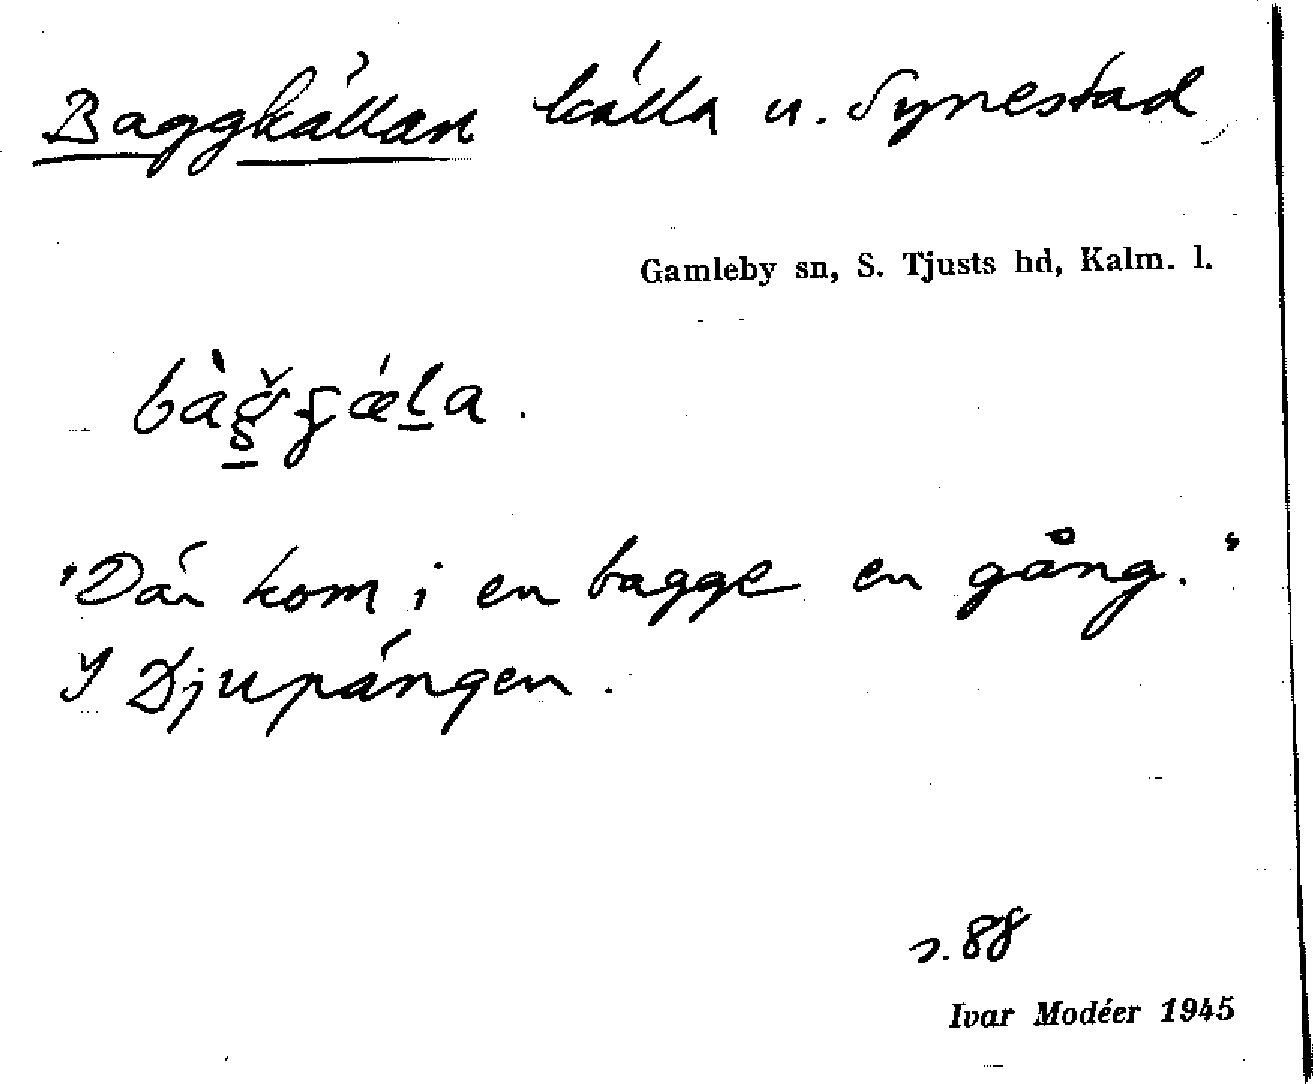 Baggkällan källa u. Synestad,
Gamleby sn, S. Tjusts hd, Kalm. l.
"Där kom i en bagge en gång."
I Djupängen.
s. 88
Ivar Modéer 1945